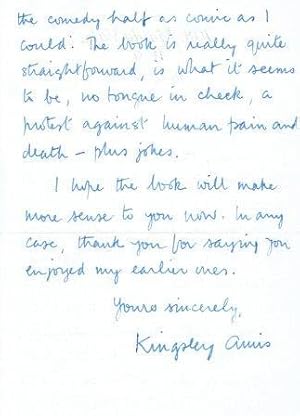 the comedy half as comic as I
could. The book is really quite
straightforward, is what it seems
to be, no tongue in cheek, a
protest against human pain and
death – plus jokes.
I hope the book will make
more sense to you now. In any
case, thank you for saying you
enjoyed my earlier ones.
Yours sincerely,
Kingsley Amis